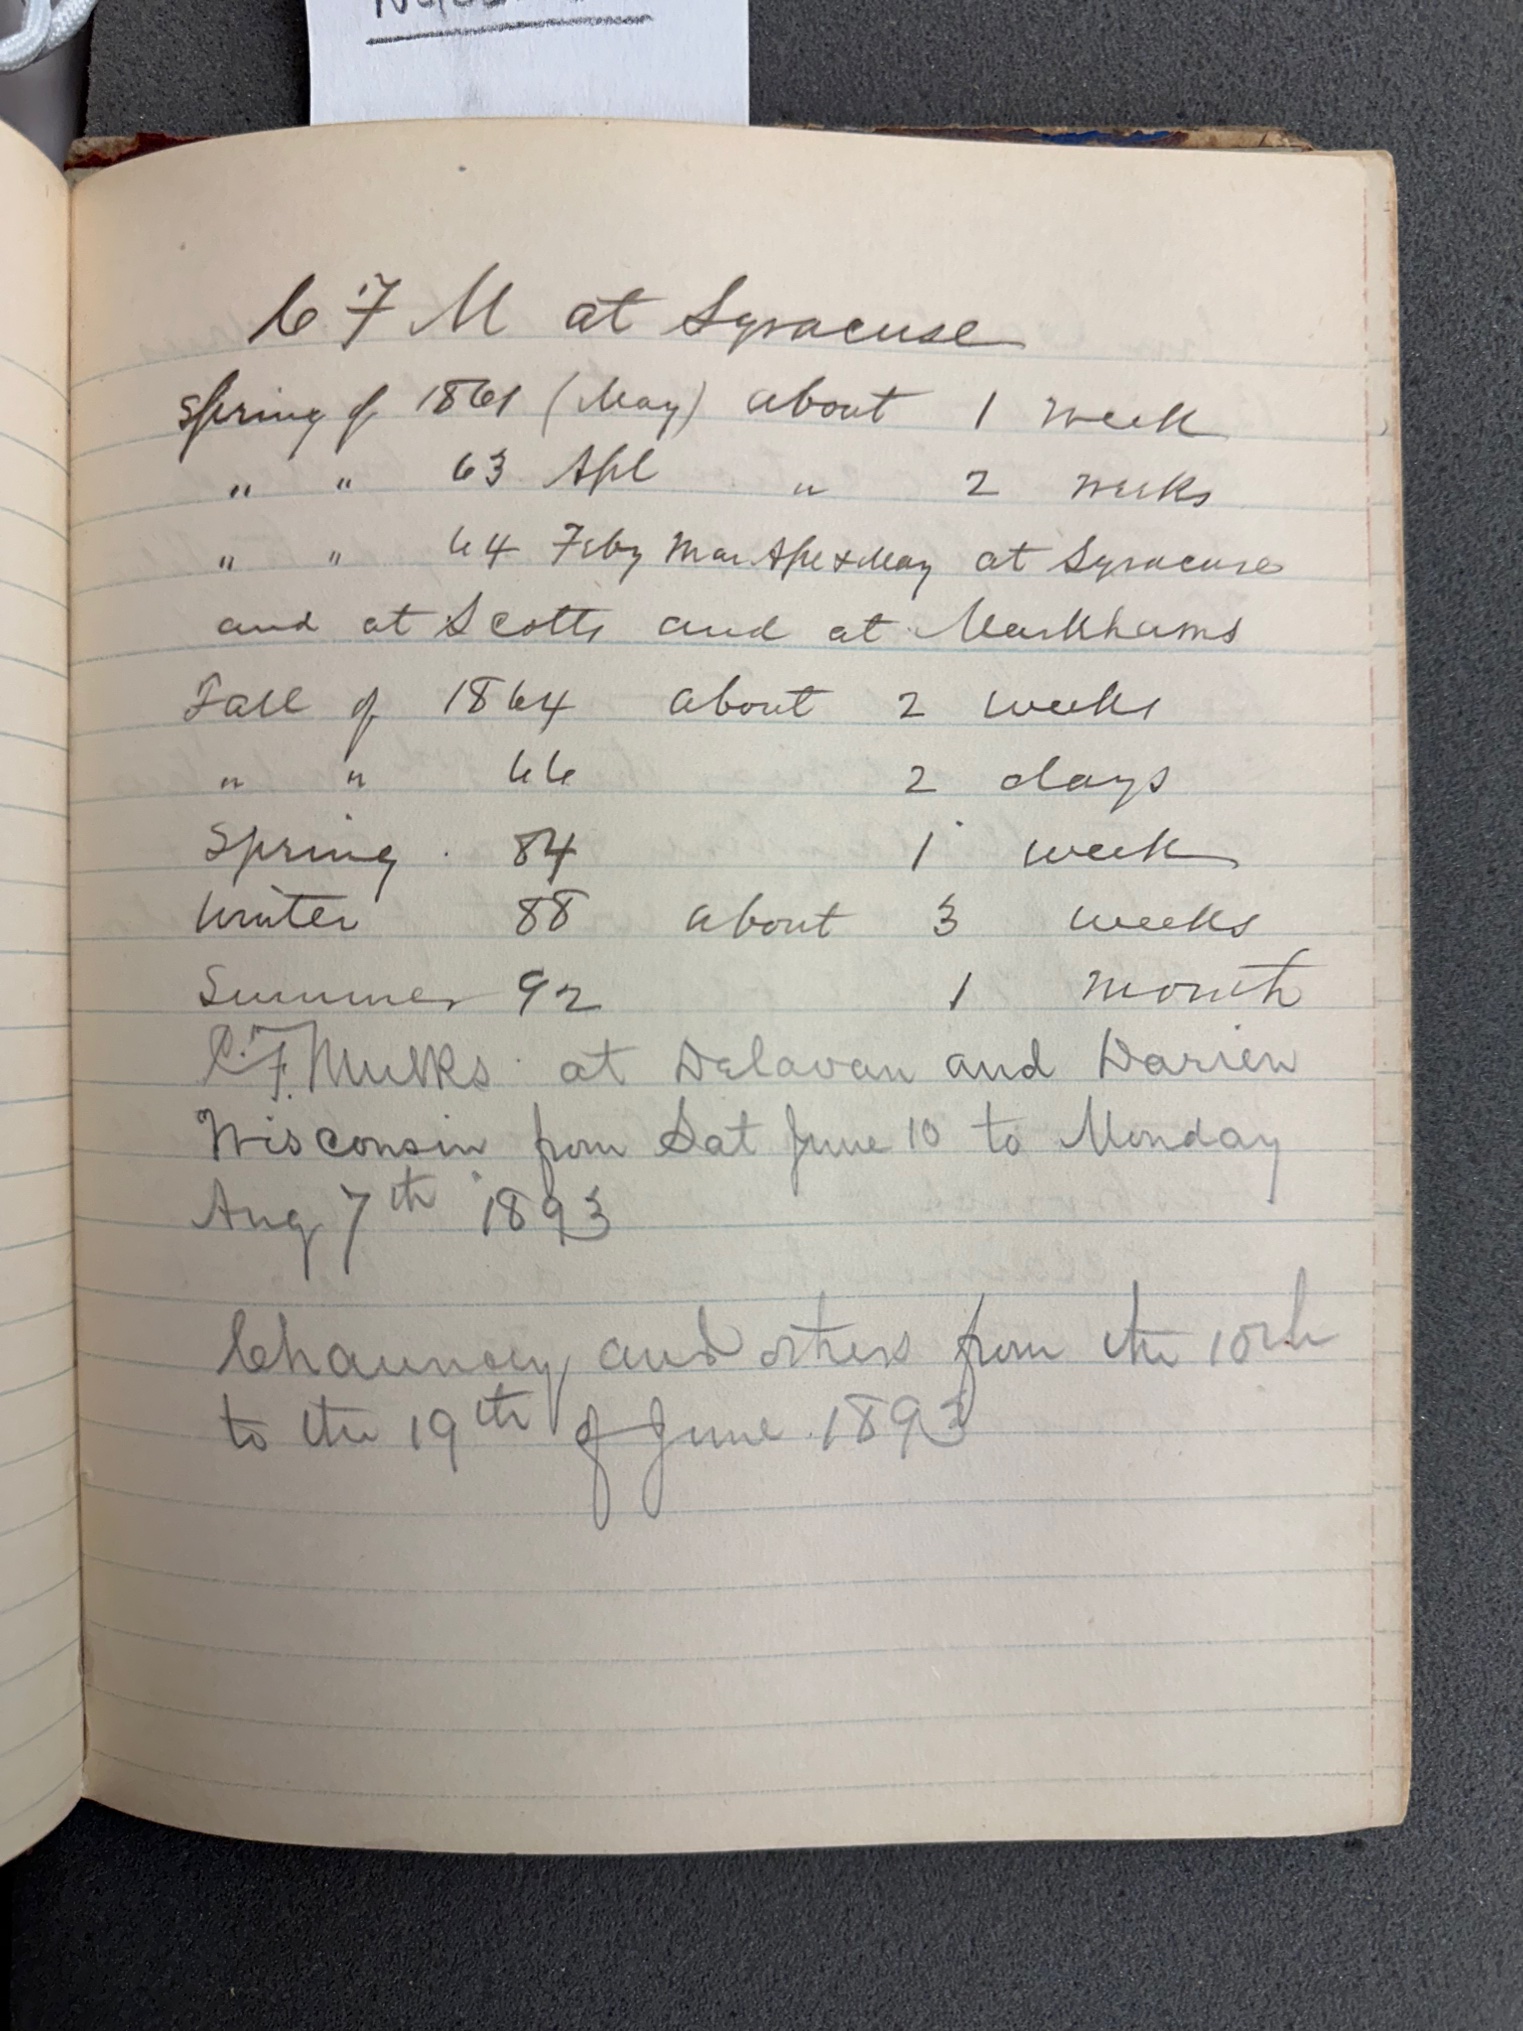 C F M at Syracuse
Spring of 1861 (May) about 1 week
" " 63 Apl " 2 weeks
" " 64 Feby Mar Apl & May at Syracuse
and at Scotts and at Markhams
Fall of 1864 about 2 weeks
" " 66 2 days
Spring 84 1 week
Winter 88 about 3 weeks
Summer 92 1 month
C. F. Mulks at Delavan and Darien
Wisconsin from Sat June 10 to Monday
Aug 7th 1893
Chauncey and others from the 10th
to the 19th of June 1893